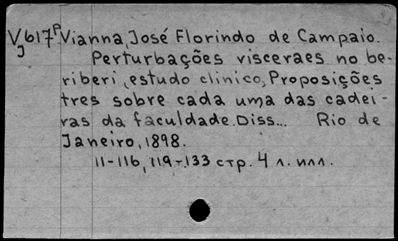 V617P Vianna, José Florindo de Campaio.
J Perturbações visceraes no be-
riberi, estudo clinico, Proposições
tres sobre cada uma das cadei-
ras da faculdade. Diss... Rio de
Janeiro, 1898.
11-116, 119-133 стр. 4 л. илл.